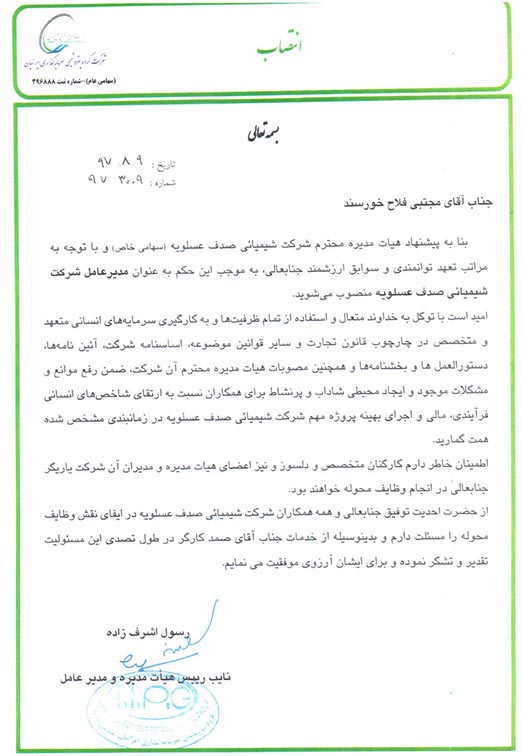 انتصاب
شرکت گروه پتروشیمی سرمایه گذاری ایرانیان
(سهامی عام)-شماره ثبت ۴۹۶۸۸۸
بسمه تعالی
تاریخ : ۹۷.۸.۹
شماره : ۹۷.۳۰۰۹
جناب آقای مجتبی فلاح خورسند
بنا به پیشنهاد هیات مدیره محترم شرکت شیمیائی صدف عسلویه (سهامی خاص) و با توجه به
مراتب تعهد توانمندی و سوابق ارزشمند جنابعالی، به موجب این حکم به عنوان مدیرعامل شرکت
شیمیائی صدف عسلویه منصوب می‌شوید.
امید است با توکل به خداوند متعال و استفاده از تمام ظرفیت‌ها و به کارگیری سرمایه‌های انسانی متعهد
و متخصص در چارچوب قانون تجارت و سایر قوانین موضوعه، اساسنامه شرکت، آئین نامه‌ها،
دستورالعمل ها و بخشنامه‌ها و همچنین مصوبات هیات مدیره محترم آن شرکت، ضمن رفع موانع و
مشکلات موجود و ایجاد محیطی شاداب و پرنشاط برای همکاران نسبت به ارتقای شاخص‌های انسانی
فرآیندی، مالی و اجرای بهینه پروژه مهم شرکت شیمیائی صدف عسلویه در زمانبندی مشخص شده
همت گمارید.
اطمینان خاطر دارم کارکنان متخصص و دلسوز و نیز اعضای هیات مدیره و مدیران آن شرکت یاریگر
جنابعالی در انجام وظایف محوله خواهند بود.
از حضرت احدیت توفیق جنابعالی و همه همکاران شرکت شیمیائی صدف عسلویه در ایفای نقش وظایف
محوله را مسئلت دارم و بدینوسیله از خدمات جناب آقای صمد کارگر در طول تصدی این مسئولیت
تقدیر و تشکر نموده و برای ایشان آرزوی موفقیت می نمایم.
رسول اشرف زاده
نایب رییس هیأت مدیره و مدیر عامل
I.I.P.G